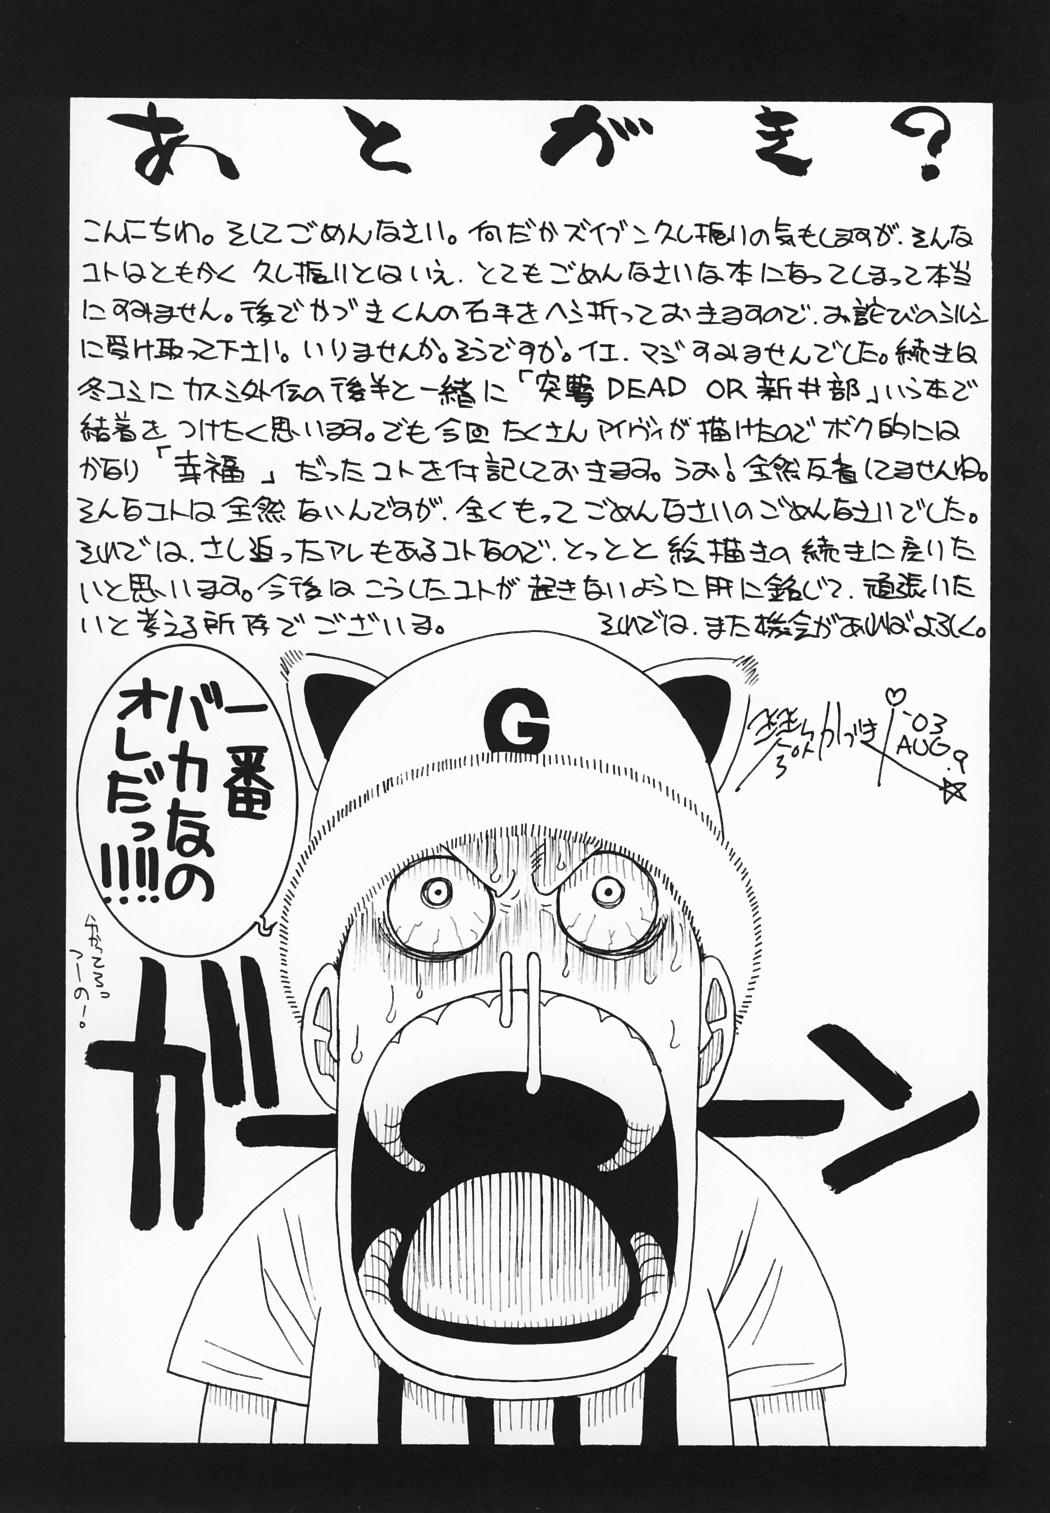 あとがき?
こんにちわ。そしてごめんなさい。何だかズイブン久し振りの気もしますが、そんな
コトはともかく 久し振りとはいえ、とてもごめんなさいな本になってしまって本当
にすみません。後でかづきくんの右手をヘシ折っておきますので、お詫びのシルシ
に受け取って下さい。いりませんか。そうですか。イエ、マジすみませんでした。続きは
冬コミに カスミ外伝の後半と一緒に「突撃 DEAD OR 新井部」いう本で
結着をつけたく思います。でも今回 たくさん アイヴィが描けたのでボク的には
かなり「幸福」だったコトを付記しておきます。うお!全然反省してませんね。
そんなコトは全然ないんですが、全くもってごめんなさいのごめんなさいでした。
それでは、さし迫ったアレもあるコトなので、とっとと絵描きの続きに戻りた
いと思います。今後はこうしたコトが起きないように肝に銘じて、頑張りた
いと考える所存でございま。 それでは、また機会があればよろしく。
かづき
'03
AUG.9
G
一番
バカなの
オレだっ!!!!
わかってるっ
つーの!。
ガーン